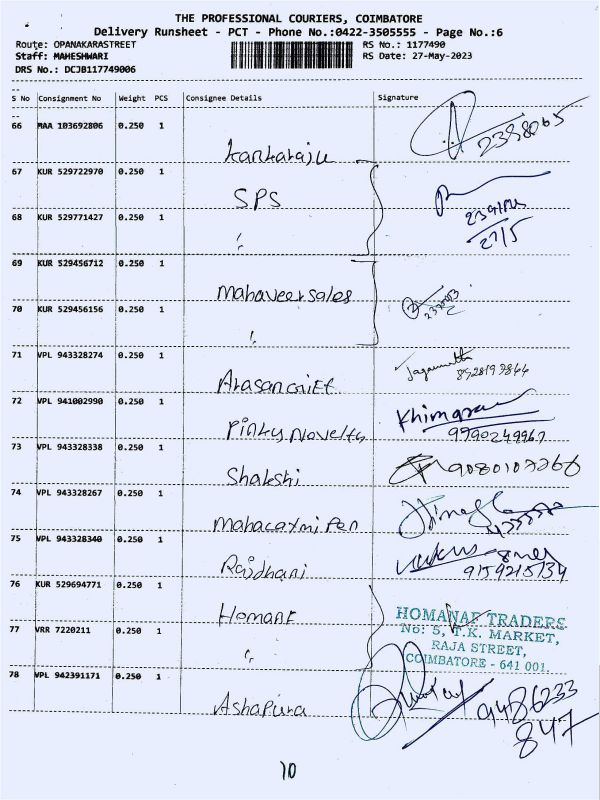 THE PROFESSIONAL COURIERS, COIMBATORE
Delivery Runsheet - PCT - Phone No.:0422-3505555 - Page No.:6
Route: OPANAKARASTREET RS No.: 1177490
Staff: MAHESHWARI RS Date: 27-May-2023
DRS No.: DCJB117749006
S No Consignment No Weight PCS Consignee Details Signature
66 MAA 103692806 0.250 1
2398065
67 KUR 529722970 0.250 1
SPS
68 KUR 529771427 0.250 1
27/5
69 KUR 529456712 0.250 1
Mahaveer sales
70 KUR 529456156 0.250 1
71 VPL 943328274 0.250 1
Jagannath
72 VPL 941002990 0.250 1
Pinky Novelty Khimaram
9790249967
73 VPL 943328338 0.250 1
Shakshi
74 VPL 943328267 0.250 1
Mahalaxmi Pen
75 VPL 943328340 0.250 1
Rajdhani
9159215134
76 KUR 529694771 0.250 1
HOMANAF TRADERS
No: 5, T.K. MARKET,
RAJA STREET,
COIMBATORE - 641 001.
77 VRR 7220211 0.250 1
78 VPL 942391171 0.250 1
Ashapura 9486233
847
10